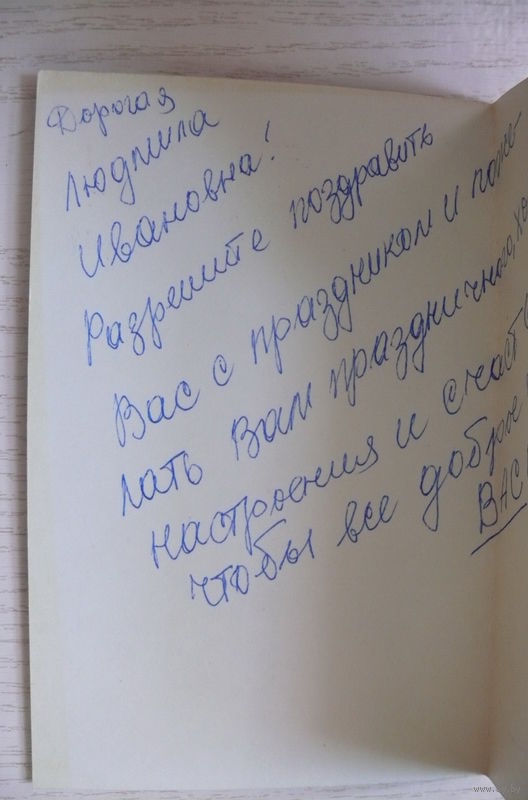 Дорогая
Людмила
Ивановна!
Разрешите поздравить
Вас с праздником и поже-
лать Вам праздничного,
настроения и счаст
чтобы все добрые
ВАС